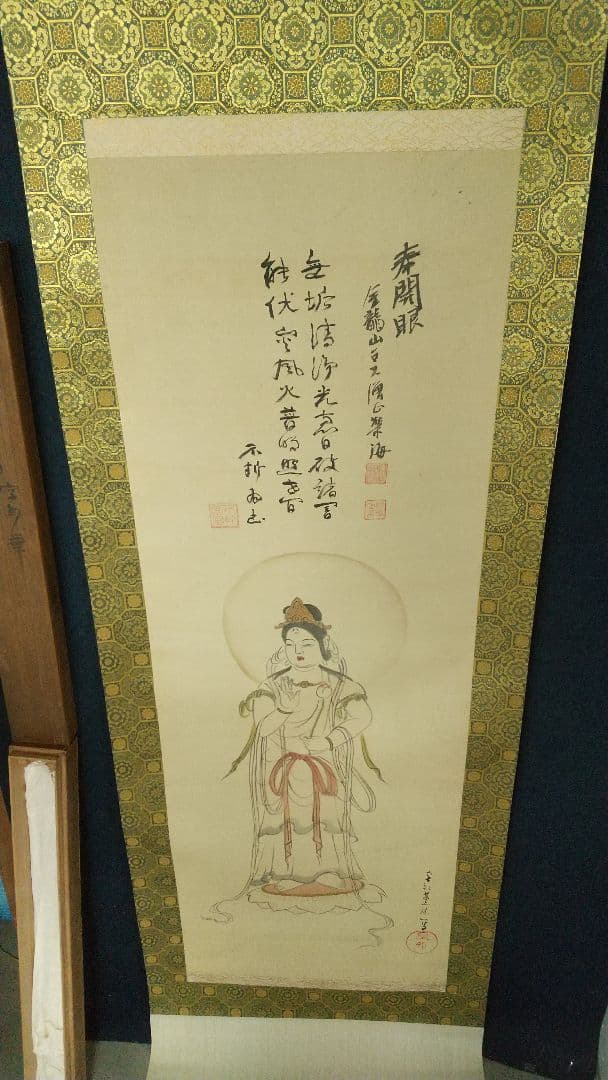 奉開眼
金龍山 大僧正 海
無垢清浄光慧日破諸闇
能伏災風火普明照世間
不折